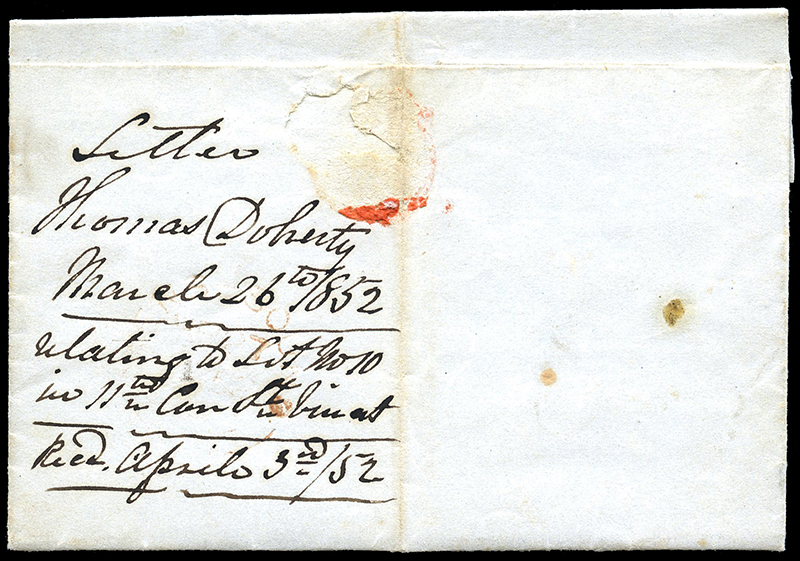 Letter
Thomas Doherty
March 26th 1852
relating to Lot No 10
in 11th Con St. Vincent
Recd. April 3rd/52